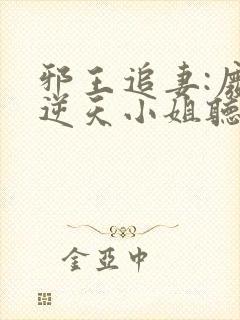 邪王追妻:
逆天小姐聽
金亞中